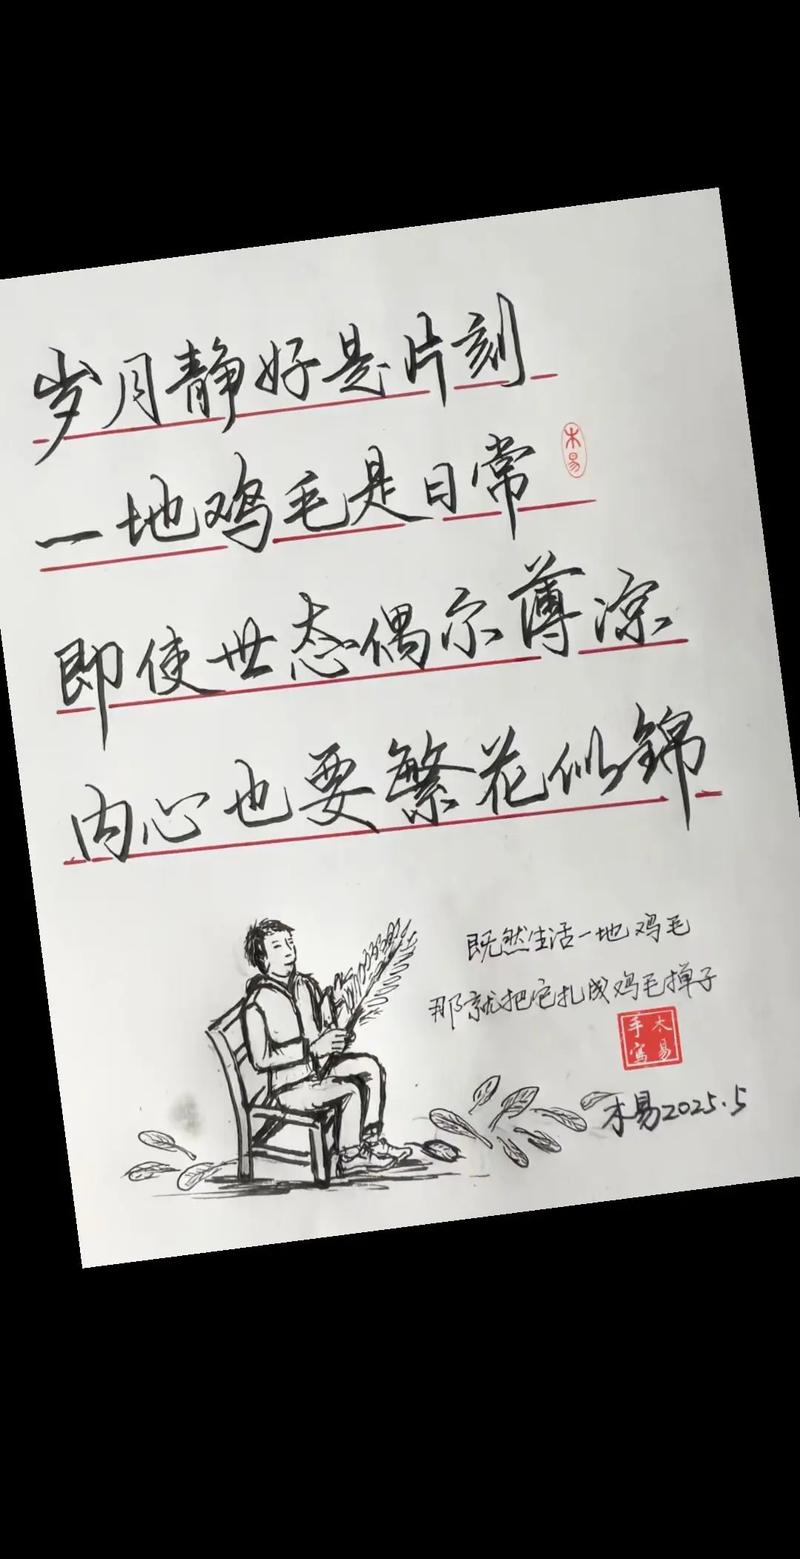 岁月静好是片刻
一地鸡毛是日常
木易
即使世态偶尔薄凉
内心也要繁花似锦
既然生活一地鸡毛
那就把它扎成鸡毛掸子
木易手写
木易2025.5